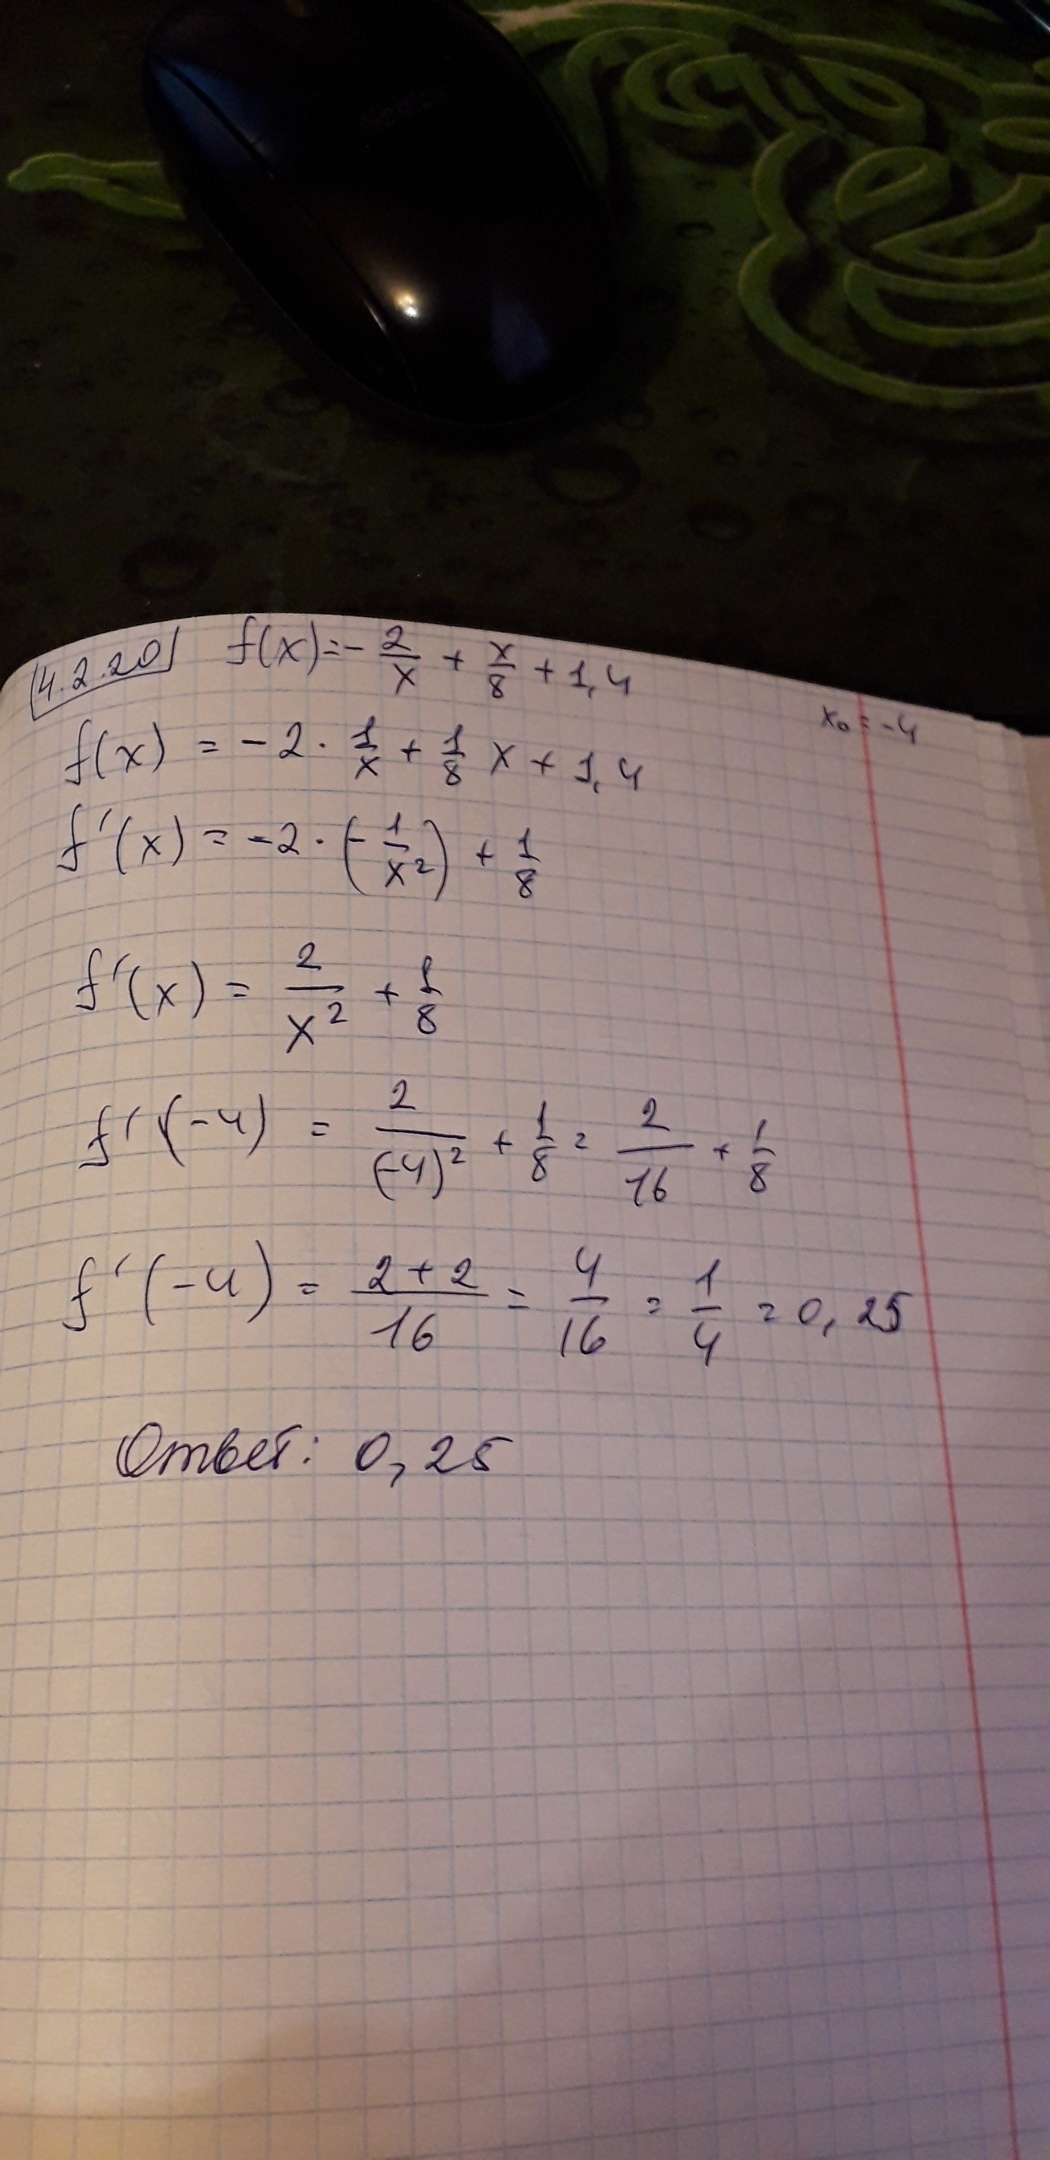 4.2.20 f(x)=-2/x + x/8 + 1,4
x₀ = -4
f(x) = -2 · 1/x + 1/8 x + 1,4
f'(x) = -2 · (-1/x²) + 1/8
f'(x) = 2/x² + 1/8
f'(-4) = 2/(-4)² + 1/8 = 2/16 + 1/8
f'(-4) = (2+2)/16 = 4/16 = 1/4 = 0,25
Ответ: 0,25